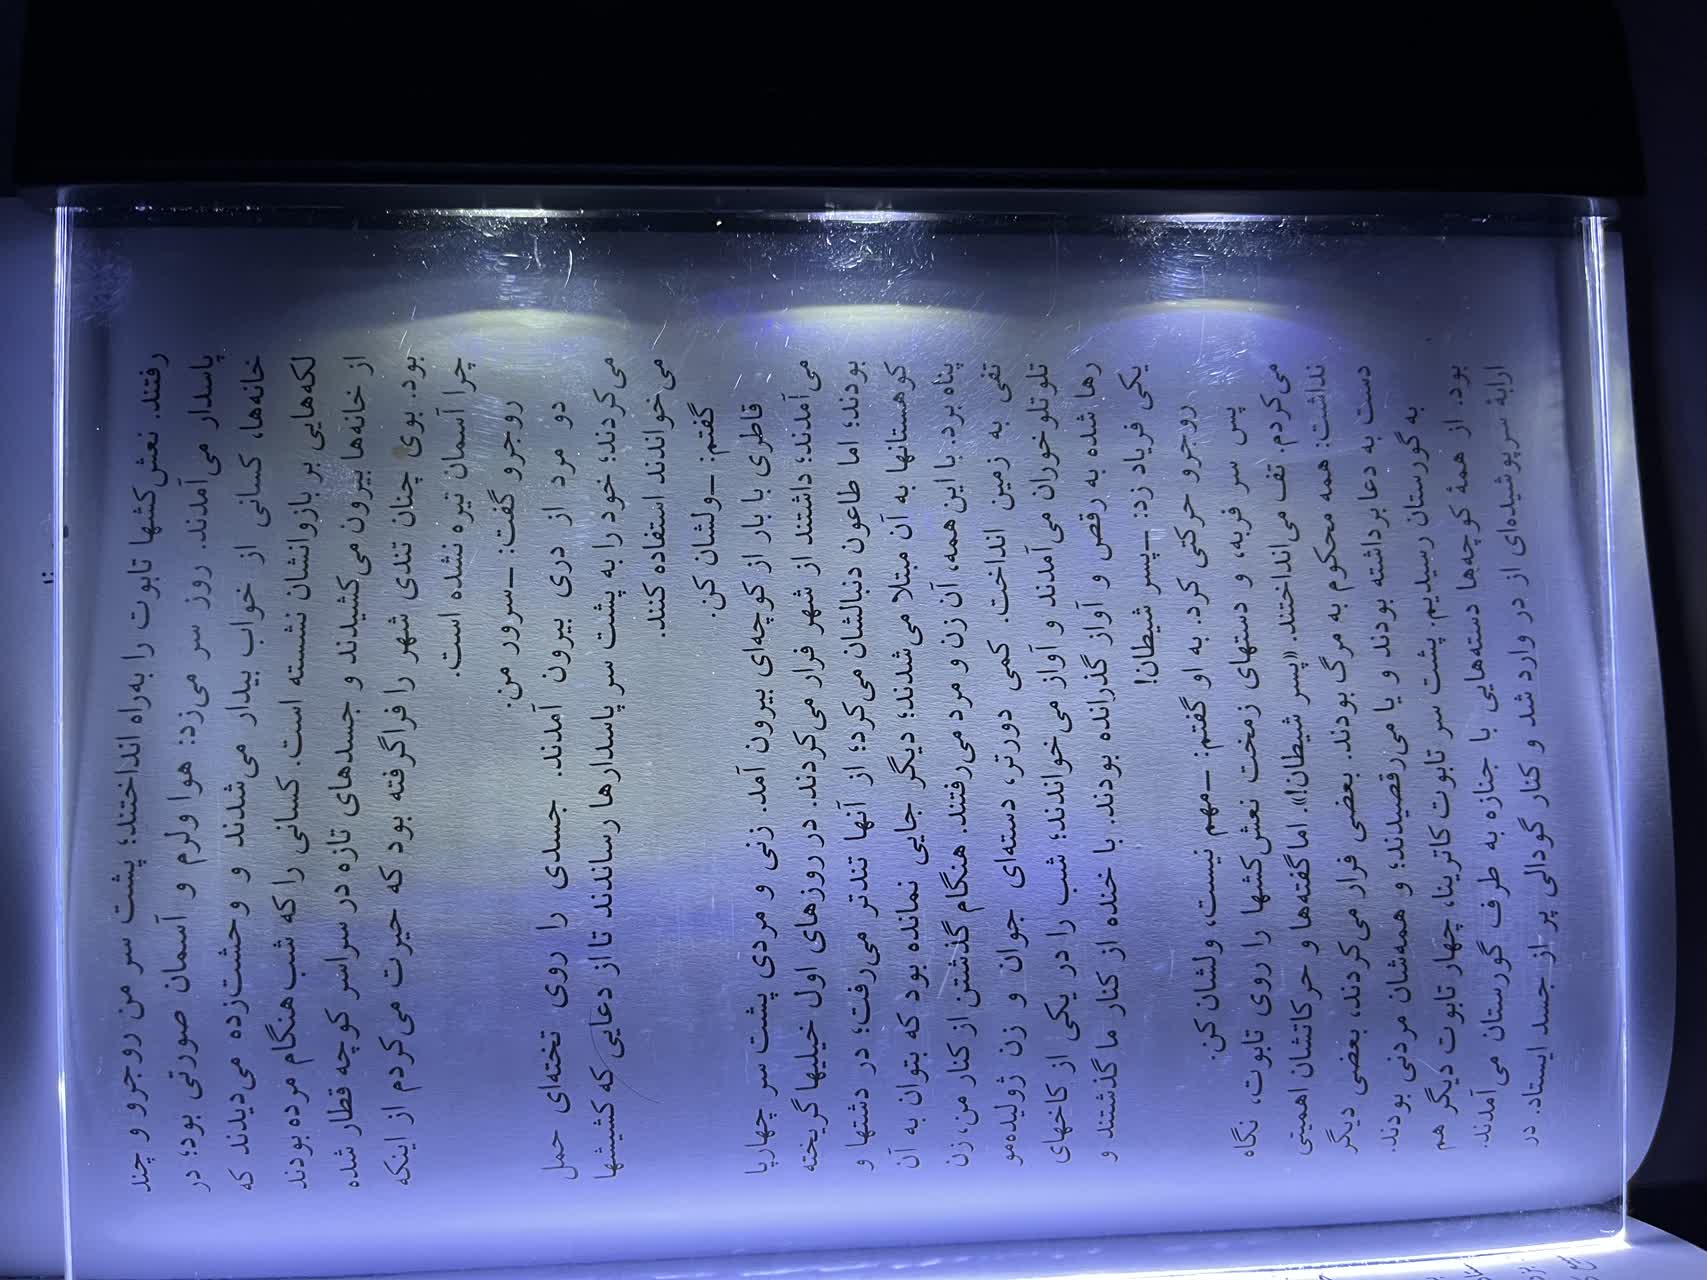 رفتند. نعش‌کشها تابوت را به‌راه انداختند؛ پشت سر من روجرو و چند
پاسدار می‌آمدند. روز سر می‌زد: هوا ولرم و آسمان صورتی بود؛ در
خانه‌ها، کسانی از خواب بیدار می‌شدند و وحشت‌زده می‌دیدند که
لکه‌هایی بر بازوانشان نشسته است. کسانی را که شب هنگام مرده بودند
از خانه‌ها بیرون می‌کشیدند و جسدهای تازه در سراسر کوچه قطار شده
بود. بوی چنان تندی شهر را فراگرفته بود که حیرت می‌کردم از اینکه
چرا آسمان تیره نشده است.
روجرو گفت: ــ سرور من.
دو مرد از دری بیرون آمدند. جسدی را روی تخته‌ای حمل
می‌کردند؛ خود را به پشت سر پاسدارها رساندند تا از دعایی که کشیشها
می‌خواندند استفاده کنند.
گفتم: ــ ولشان کن.
قاطری با بار از کوچه‌ای بیرون آمد. زنی و مردی پشت سر چهارپا
می‌آمدند؛ داشتند از شهر فرار می‌کردند. در روزهای اول خیلیها گریخته
بودند؛ اما طاعون دنبالشان می‌کرد؛ از آنها تندتر می‌رفت؛ در دشتها و
کوهستانها به آن مبتلا می‌شدند؛ دیگر جایی نمانده بود که بتوان به آن
پناه برد. با این همه، آن زن و مرد می‌رفتند. هنگام گذشتن از کنار من، زن
تفی به زمین انداخت. کمی دورتر، دسته‌ای جوان و زن ژولیده‌مو
تلوتلوخوران می‌آمدند و آواز می‌خواندند؛ شب را در یکی از کاخهای
رها شده به رقص و آواز گذرانده بودند. با خنده از کنار ما گذشتند و
یکی فریاد زد: ــ پسر شیطان!
روجرو حرکتی کرد. به او گفتم: ــ مهم نیست، ولشان کن.
پس سر فربه، و دستهای زمخت نعش‌کشها را روی تابوت، نگاه
می‌کردم. تف می‌انداختند. «پسر شیطان!». اما گفته‌ها و حرکاتشان اهمیتی
نداشت: همه محکوم به مرگ بودند. بعضی فرار می‌کردند، بعضی دیگر
دست به دعا برداشته بودند و یا می‌رقصیدند؛ و همه‌شان مردنی بودند.
به گورستان رسیدیم. پشت سر تابوت کاترینا، چهار تابوت دیگر هم
بود. از همهٔ کوچه‌ها دسته‌هایی با جنازه به طرف گورستان می‌آمدند.
ارابهٔ سرپوشیده‌ای از در وارد شد و کنار گودالی پر از جسد ایستاد. در